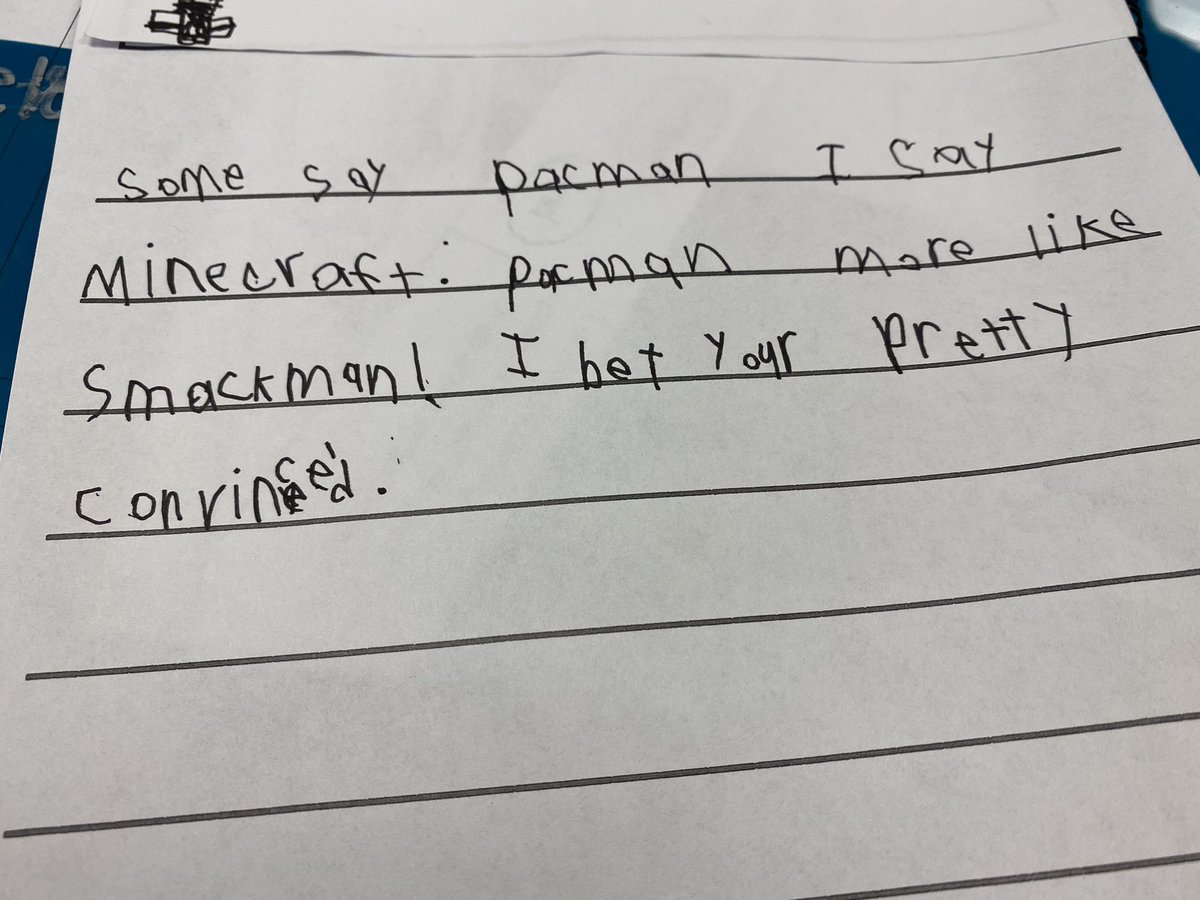 Some say pacman I say
Minecraft. pacman more like
Smackman! I bet your pretty
convinced.